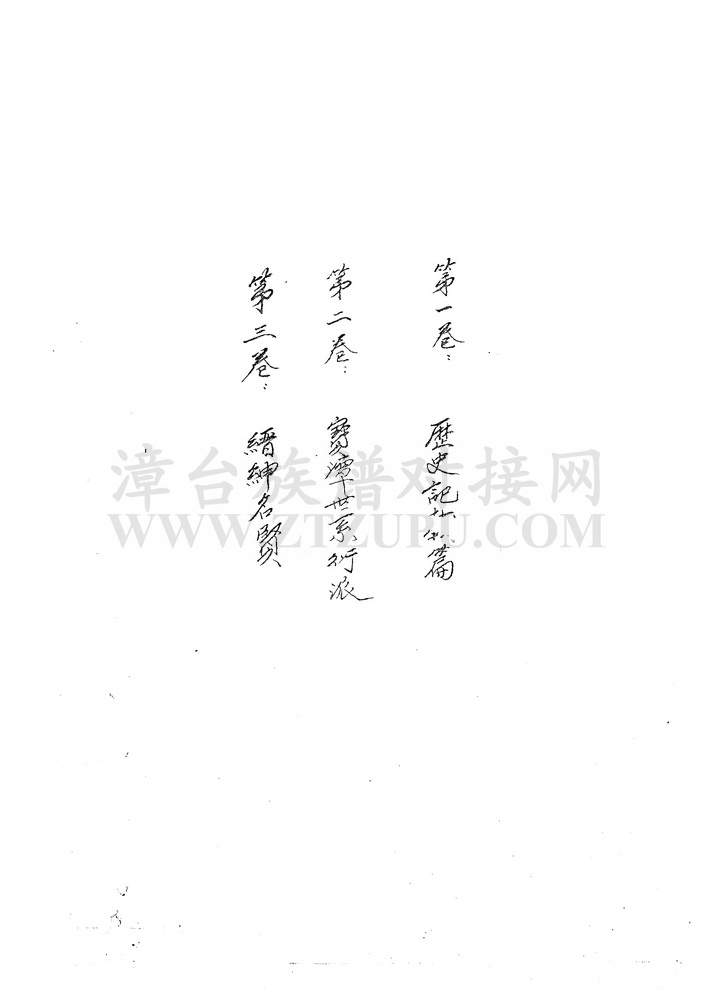 第一卷：歷史記
篇
第二卷：寶潭世系衍派
第三卷：縉紳名賢
漳台族谱对接网
WWW.ZTZUPU.COM